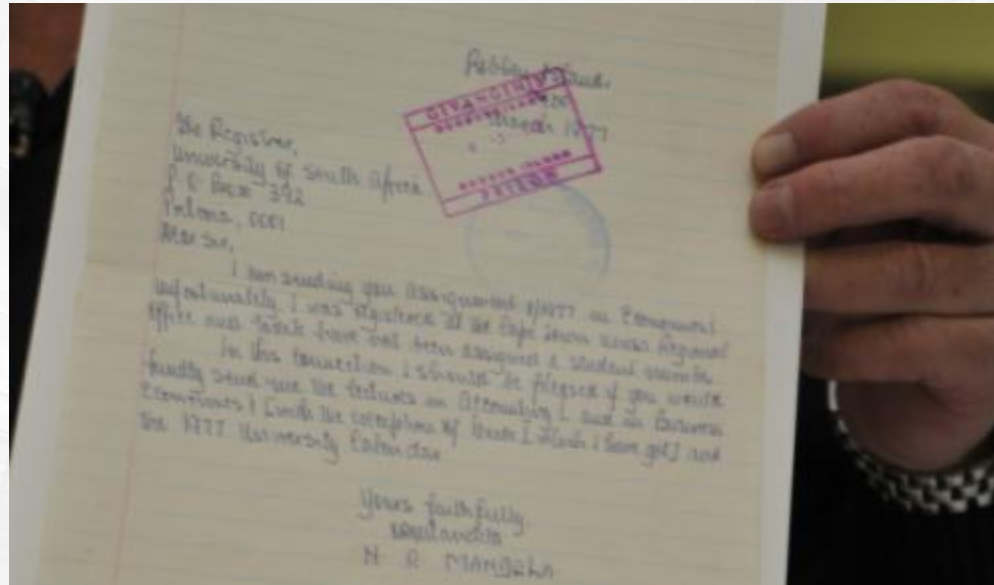 Robben Island,
March 1977
GEVANGENIS
ROBBEN ISLAND
PRISON
The Registrar,
University of South Africa
P.O. Box 392
Pretoria, 0001
Dear Sir,
I am sending you assignment 1/1977 in Economics I
Unfortunately I was registered at the Cape Town UNISA Regional
Office and have not been assigned a student number
In this connection I should be pleased if you would
kindly send me the lectures on Accounting I and on Business
Economics I [with the exception of those I which I have got] and
the 1977 University Calendar
Yours faithfully,
NRMandela
N R MANDELA